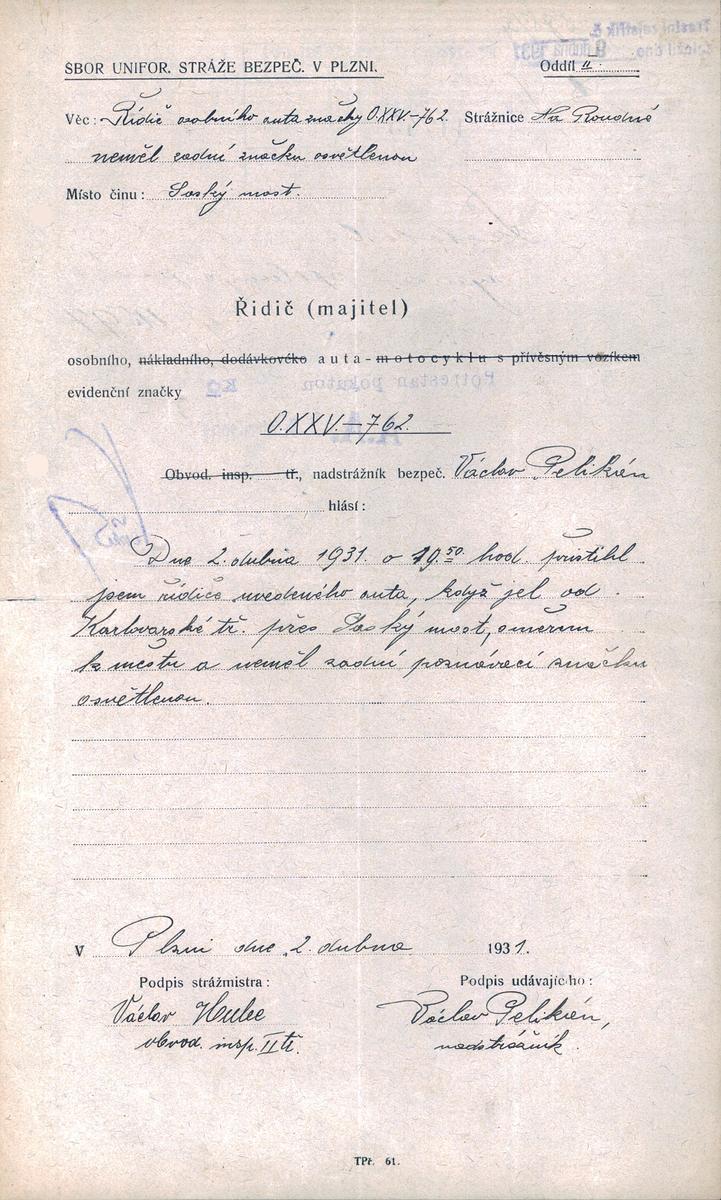 SBOR UNIFOR. STRÁŽE BEZPEČ. V PLZNI.
Oddíl II.
Věc: Řidič osobního auta značky O.XXV-762. Strážnice Na Roudné
neměl zadní značku osvětlenou
Místo činu: Saský most.
Řidič (majitel)
osobního, nákladního, dodávkového auta - motocyklu s přívěsným vozíkem
evidenční značky
O.XXV.-762.
Obvod. insp. tř., nadstrážník bezpeč. Václav Pelikán
hlásí:
Dne 2. dubna 1931. o 19.50 hod. přistihl
jsem řidiče uvedeného auta, když jel od
Karlovarské tř. přes Saský most, směrem
k městu a neměl zadní poznávací značku
osvětlenou.
V Plzni dne 2. dubna 1931.
Podpis strážmistra: Podpis udávajícího:
Václav Pelikán,
obvod. insp. II tř. nadstrážník.
TPř. 61.